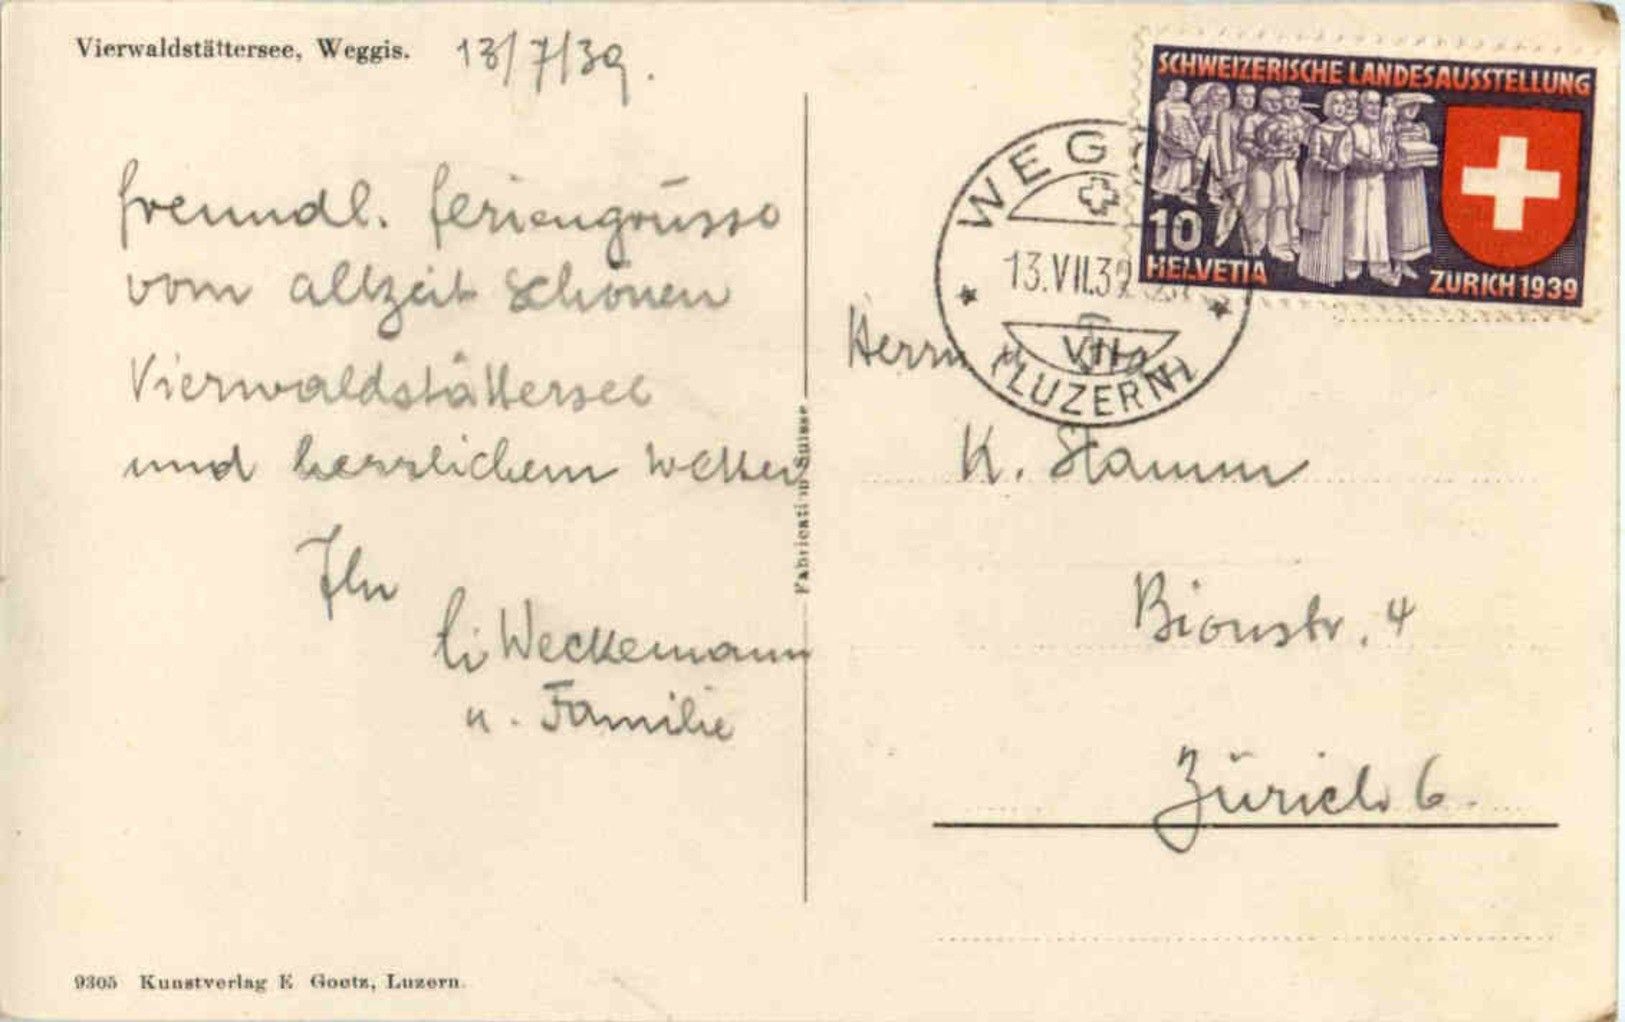 Vierwaldstättersee, Weggis. 13/7/39.
freundl. feriengrüsse
vom allzeit schönen
Vierwaldstättersee
und herrlichem Wetter
Ihr
Weckemann
u. Familie
9305 Kunstverlag E Goetz, Luzern.
Fabrication Suisse
SCHWEIZERISCHE LANDESAUSSTELLUNG
10
HELVETIA
ZÜRICH 1939
13.VII.39
VII
(LUZERN)
Herrn
K. Stamm
Bionstr. 4
Zürich 6.